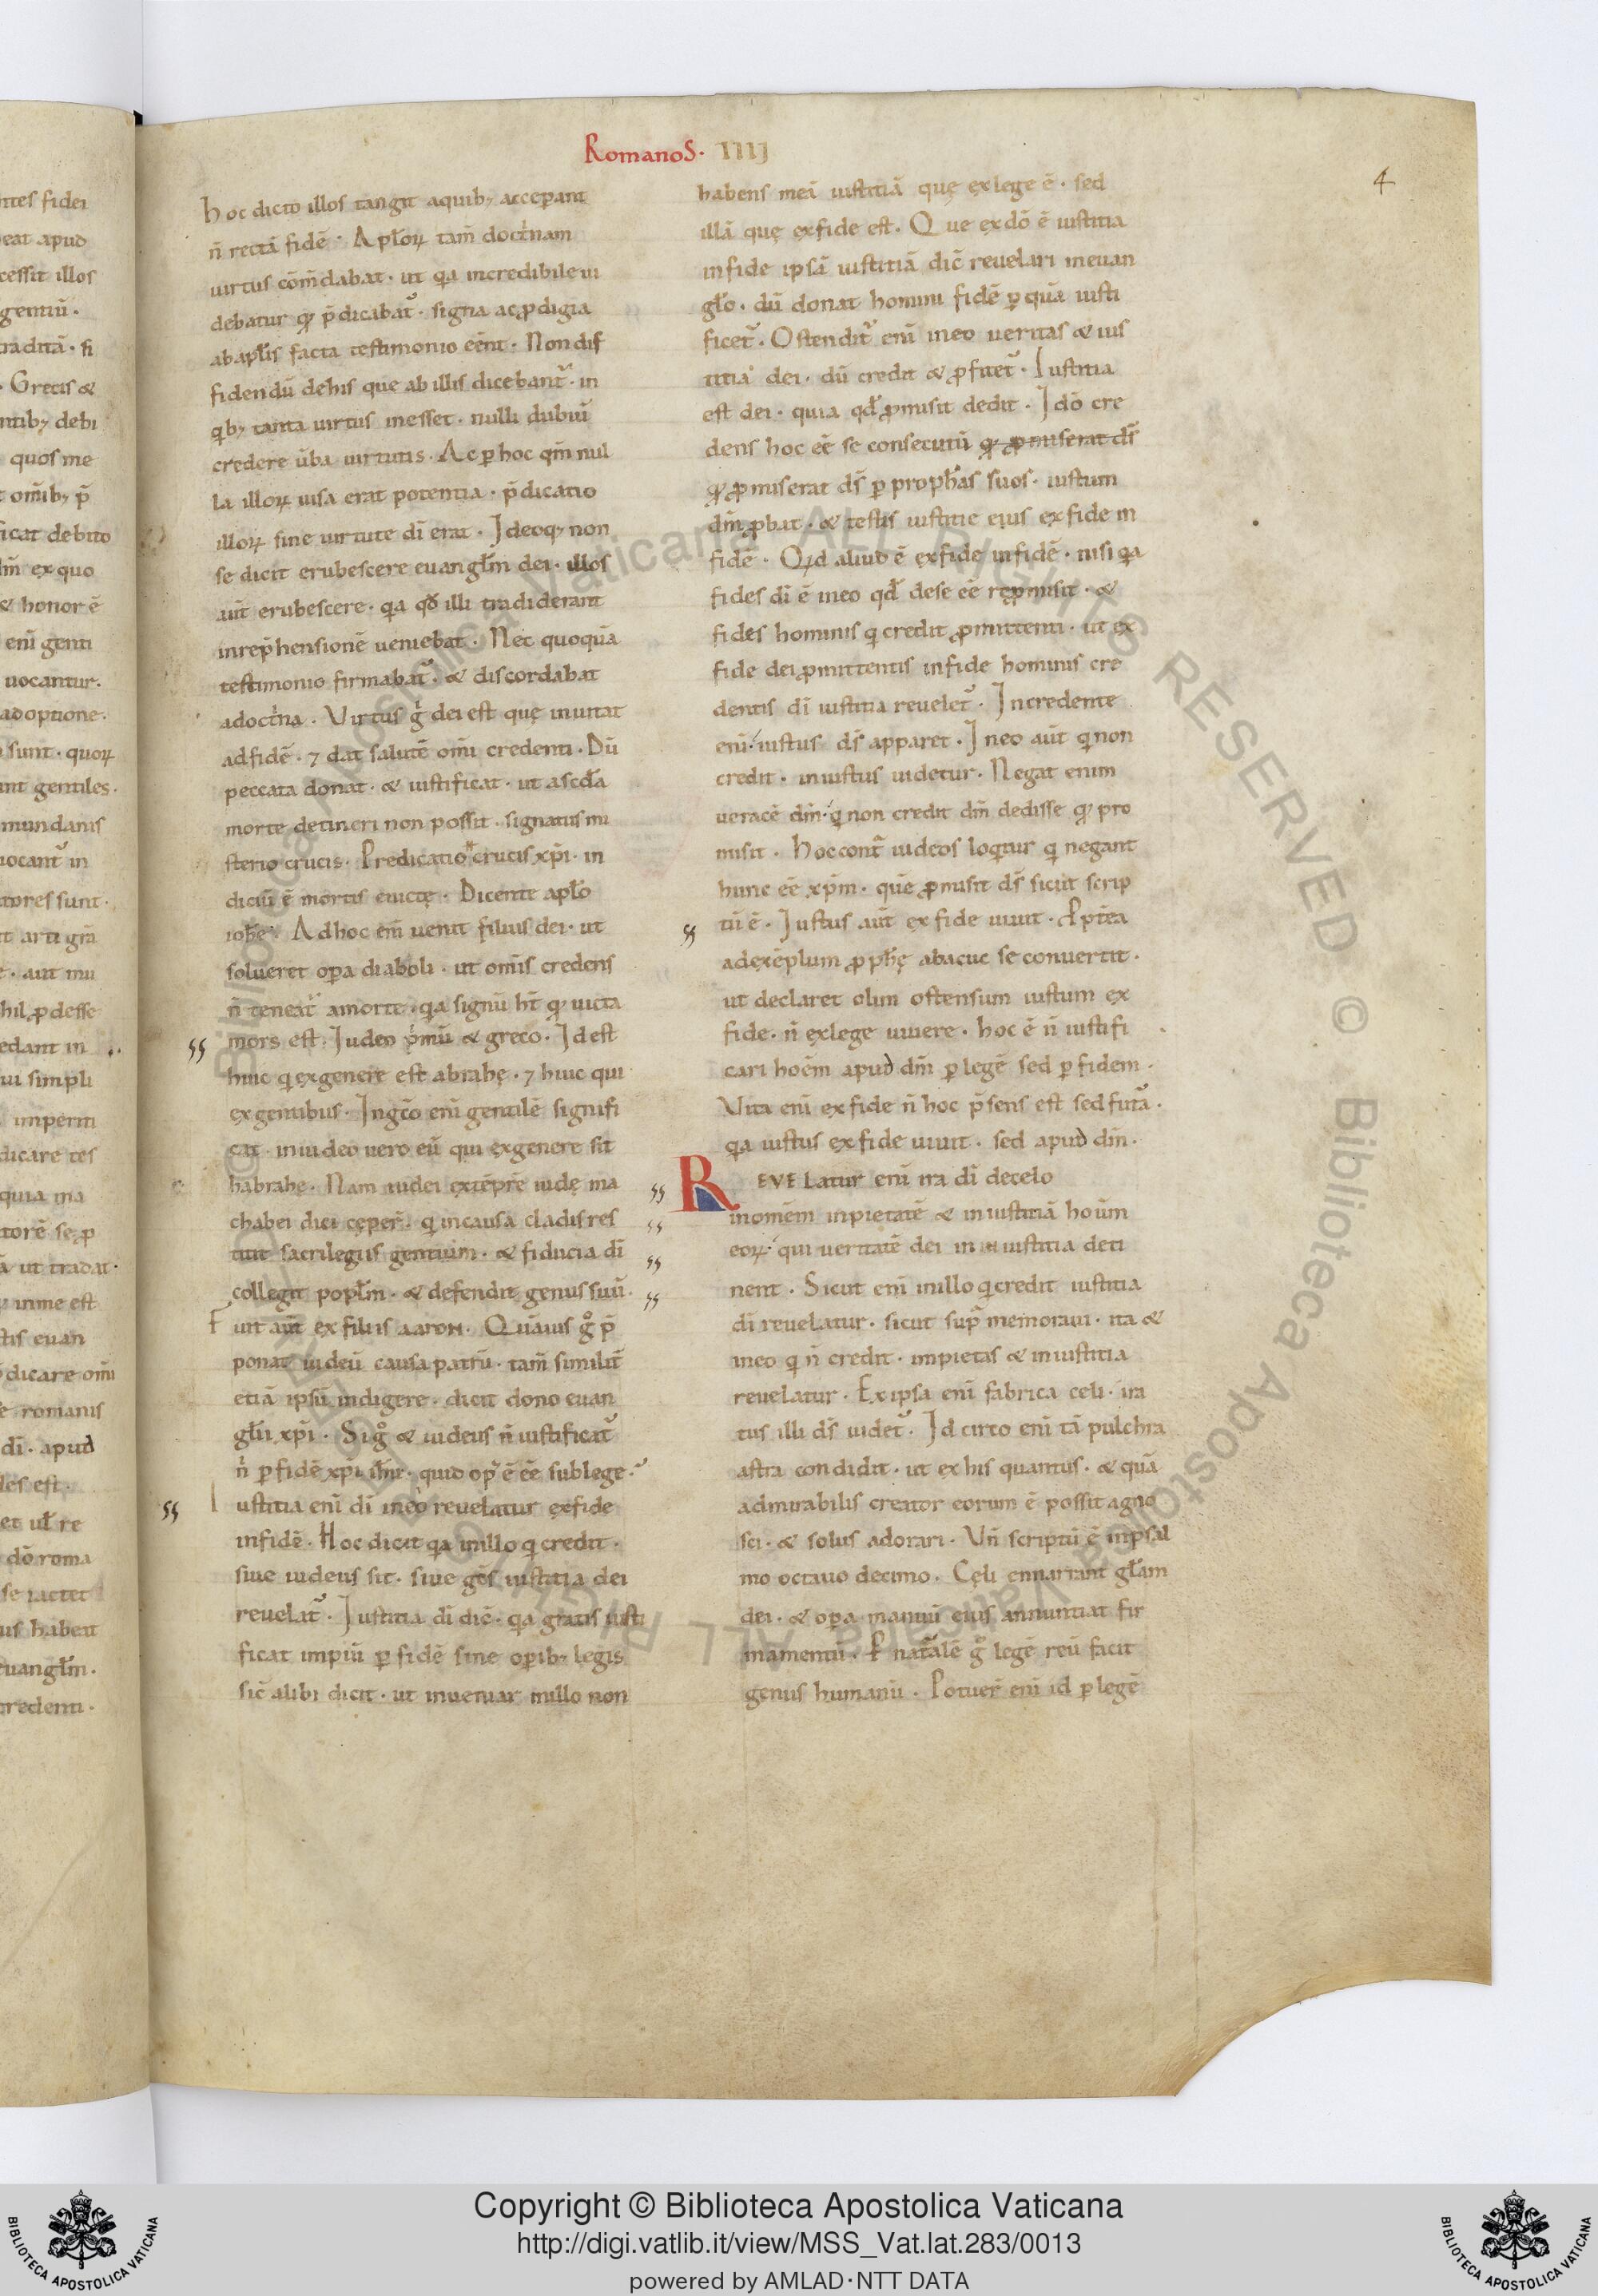 Romanos. IIII
4
hoc dicto illos tangit aquibꝫ acceperant
n̄ rectā fidē. Apl̄oꝝ tam̄ doctͥnam
uirtus cōm̄dabat. ut qͣ incredibile ui
debatur qđ p̄dicabat᷑. signa ac ꝓdigia
abapl̄is facta testimonio eēnt. Non dif
fidendū dehis que ab illis dicebant᷑. in
qͥbꝫ tanta uirtus inesset. nulli dubiū
credere ūba uirtutis. Ac ꝑ hoc qm̄ nul
la illoꝝ uisa erat potentia. p̄dicatio
illoꝝ sine uirtute dī erat. Ideoqꝫ non
se dicit erubescere euangl̄m dei. illos
aūt erubescere. qͣ qđ illi tradiderant
inrep̄hensionē ueniebat. Nec quoquā
testimonio firmabat᷑. & discordabat
adoctͥna. Virtus gͥ dei est quę inuitat
adfidē. ⁊ dat salutē om̄i credenti. Dū
peccata donat. & iustificat. ut asc̄đa
morte detineri non possit. signatus mi
sterio crucis. Predicatio crucis xp̄i. in
diciū ē mortis euictę. Dicente apl̄o
ioh̄e. Adhoc enī uenit filius dei. ut
solueret oꝑa diaboli. ut om̄is credens
n̄ teneat᷑ amorte. qͣ signū ht̄ qđ uicta
mors est. Iudeo pͥmū & greco. Id est
huic qͥ exgenere est abrahę. ⁊ huic qui
exgentibus. Ingc̄o enī gentilē signifi
cat. iniudeo uero eū qui exgenere sit
habrahę. Nam iudei extēpr̄e iudę ma
chabei dici cęper̄. qͥ incausa cladis res
titit sacrilegiis gentium. & fiducia dī
collegit popl̄m. & defendit genus suū.
Fuit aūt ex filiis aaron. Quāuis gͦ p̄
ponat iudeū causa patrū. tam̄ similit᷑
etiā ipsū indigere. dicit dono euan
gl̄ii xp̄i. Si gͦ & iudeus n̄ iustificat᷑
nͥ ꝑ fidē xp̄i ih̄u. quid op᷒ ē eē sublege.
Iustitia enī dī ineo reuelatur exfide
infidē. Hoc dicit qͣ inillo qͥ credit.
siue iudeus sit. siue gc̄s iustitia dei
reuelat᷑. Iustitia dī dic̄. qͣ gratis iusti
ficat impiū ꝑ fidē sine oꝑibꝫ legis
sic̄ alibi dicit. ut inueniar inillo non
habens meā iustitiā quę exlege ē. sed
illā quę exfide est. Que exdō ē iustitia
infide ipsā iustitiā dic̄ reuelari ineuan
gl̄o. dū donat homini fidē ꝑ quā iusti
ficet᷑. Ostendit᷑ enī ineo ueritas & ius
titia dei. dū credit & ꝓfitet᷑. Iustitia
est dei. quia qđ ꝓmisit dedit. Idō cre
dens hoc eē se consecutū qđ ꝓmiserat ds̄
qđ ꝓmiserat ds̄ ꝑ proph̄as suos. iustum
dm̄ ꝓbat. & testis iustitie eius exfide in
fidē. Qͥd aliud ē exfide infidē. nisi qͣ
fides dī ē ineo qđ dese eē reꝓmisit. &
fides hominis qͥ credit ꝓmittenti. ut ex
fide dei ꝓmittentis infide hominis cre
dentis dī iustitia reuelet᷑. Incredente
enī iustus ds̄ apparet. Ineo aūt qͥ non
credit. iniustus uidetur. Negat enim
ueracē dm̄ qͥ non credit dm̄ dedisse qđ pro
misit. Hoc contᷓ iudeos loqͥtur qͥ negant
hunc eē xp̄m. quē ꝓmisit ds̄ sicut scrip
tū ē. Iustus aūt ex fide uiuit. Pp̄tea
adexēplum ꝓph̄ę abacuc se conuertit.
ut declaret olim ostensum iustum ex
fide. n̄ exlege uiuere. hoc ē n̄ iustifi
cari hoēm apud dm̄ ꝑ legē sed ꝑ fidem.
Vita enī exfide n̄ hoc p̄sens est sed futᷓa.
qͣ iustus exfide uiuit. sed apud dm̄.
REVELatur enī ira dī decelo
inomēm inpietatē & iniustitiā hoūm
eoꝝ qui ueritatē dei in iniustitia deti
nent. Sicut enī inillo qͥ credit iustitia
dī reuelatur. sicut supᷓ memoraui. ita &
ineo qͥ n̄ credit. impietas & iniustitia
reuelatur. Ex ipsa enī fabrica celi. ira
tus illi ds̄ uidet᷑. Id circo enī tā pulchra
astra condidit. ut ex his quantus. & quā
admirabilis creator eorum ē possit agno
sci. & solus adorari. Vn̄ scriptū ē inpsal
mo octauo decimo. Cęli ennarrant gl̄am
dei. & oꝑa manuū eius annuntiat fir
mamentū. P natᷓalē gͦ legē reū facit
genus humanū. Potuer̄ enī id ꝑ legē
Copyright © Biblioteca Apostolica Vaticana
http://digi.vatlib.it/view/MSS_Vat.lat.283/0013
powered by AMLAD·NTT DATA